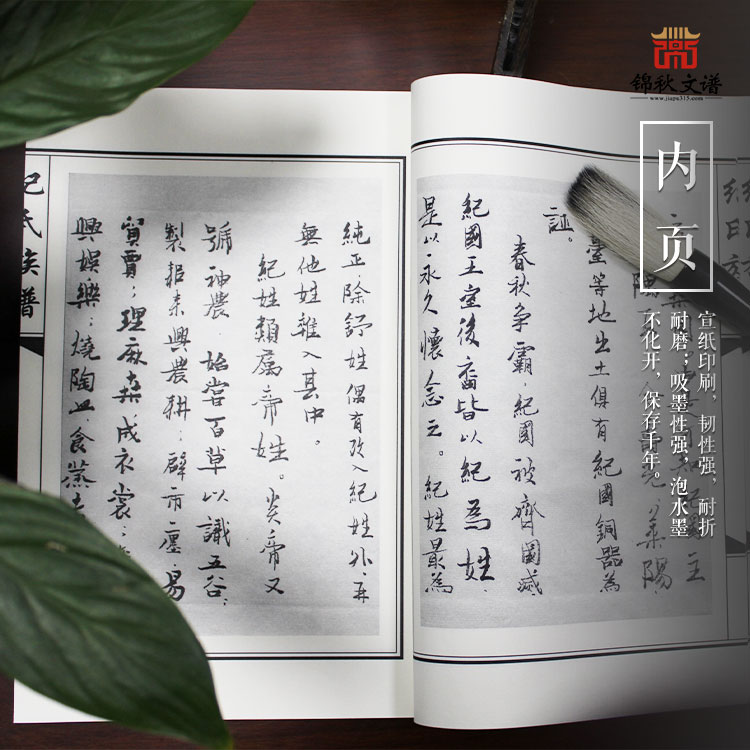 锦秋文谱
www.jiapu315.com
内页
宣纸印刷，韧性强，耐折
耐磨；吸墨性强，泡水墨
不化开，保存千年。
臺等地出土俱有紀國銅器為
証。
春秋争霸，紀國被齊國滅，
紀國王室後裔皆以紀為姓，
是以永久懷念之。紀姓最為
純正除舒姓偶有改入紀姓外，再
無他姓雜入其中。
紀姓類屬帝姓。炎帝又
號神農，始嘗百草以識五谷；
製耜耒興農耕；辟市廛，易
貿賣；理麻卉，成衣裳；
興娛樂；燒陶皿，食蒸
紀氏族譜